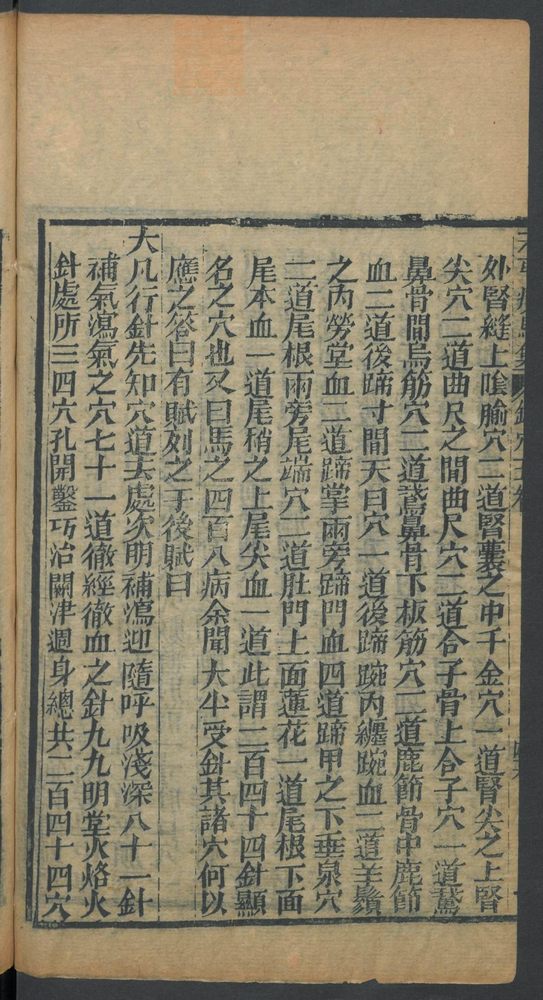 外腎縫上陰腧穴二道腎囊之中千金穴一道腎尖之上腎
尖穴二道曲尺之間曲尺穴二道合子骨上合子穴一道鵞
鼻骨間烏筋穴二道鵞鼻骨下板筋穴二道鹿節骨中鹿節
血二道後蹄寸間天臼穴一道後蹄踠內纏踠血二道羊鬚
之內勞堂血二道蹄掌兩旁蹄門血四道蹄甲之下垂泉穴
二道尾根兩旁尾端穴二道肚門上面蓮花一道尾根下面
尾本血一道尾稍之上尾尖血一道此謂二百四十四針顯
名之穴也又曰馬之四百八病余聞大半受針其諸穴何以
應之答曰有賦列之于後賦曰
大凡行針先知穴道去處次明補瀉迎隨呼吸淺深八十一針
補氣瀉氣之穴七十一道徹經徹血之針九九明堂火烙火
針處所三四穴孔開鑿巧治關津週身總共二百四十四穴